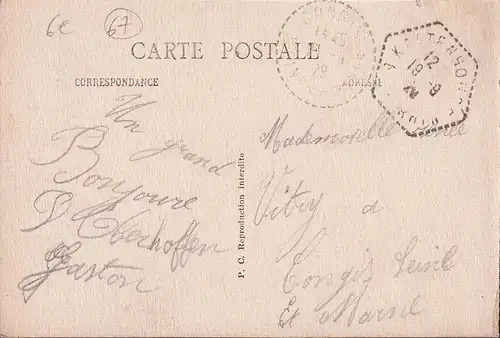 6e 67
CARTE POSTALE
CORRESPONDANCE
ADRESSE
KALTENHOUSE
12
18 - 9
29
BAS-RHIN
14
29
Un grand
Bonjoure
D'Oberhoffen
Gaston
P. C. Reproduction interdite
Mademoiselle
Vitry a
Congis Seine
Et Marne